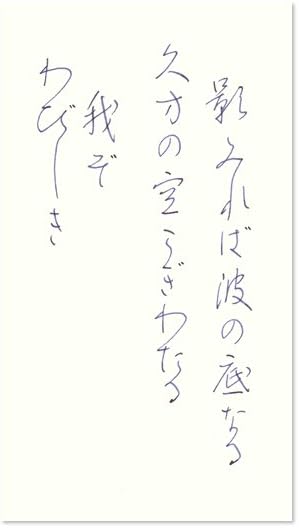 影みれば波の底なる
久方の空こぎわたる
我ぞ
わびしき